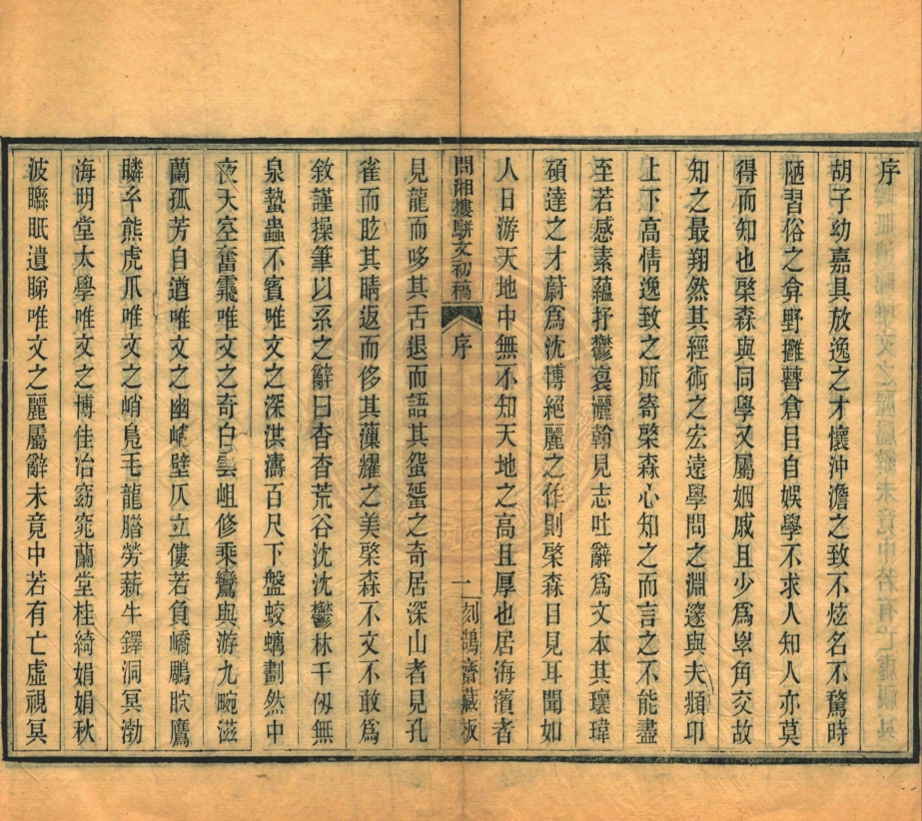 序
胡子幼嘉具放逸之才懷沖澹之致不炫名不驚時
陋習俗之弇野攤瞽倉目自娛學不求人知人亦莫
得而知也棨森與同學又屬姻戚且少爲丱角交故
知之最翔然其經術之宏遠學問之淵邃與夫頫卬
上下高情逸致之所寄棨森心知之而言之不能盡
至若感素蘊抒鬱裛灑翰見志吐辭爲文本其瓌瑋
碩達之才蔚爲沈博絕麗之作則棨森目見耳聞如
人日游天地中無不知天地之高且厚也居海濱者
問湘樓駢文初稿
序
一
刻鵠齋藏板
見龍而哆其舌退而語其蜿蜑之奇居深山者見孔
雀而眩其睛返而侈其薸耀之美棨森不文不敢爲
敘謹操筆以系之辭曰杳杳荒谷沈沈鬱林千仞無
泉蟄蟲不賓唯文之深淇濤百尺下盤蛟螭劃然中
夜天空奮飛唯文之奇白雲岨修乘鸞與游九畹滋
蘭孤芳自遒唯文之幽嶁壁仄立僂若負嶠鵬眅鷹
瞵豸熊虎爪唯文之峭鳧毛龍腦勞薪牛鐸洞冥渤
海明堂太學唯文之博佳冶窈窕蘭堂桂綺娟娟秋
波矊眠遺睇唯文之麗屬辭未竟中若有亡虛視冥